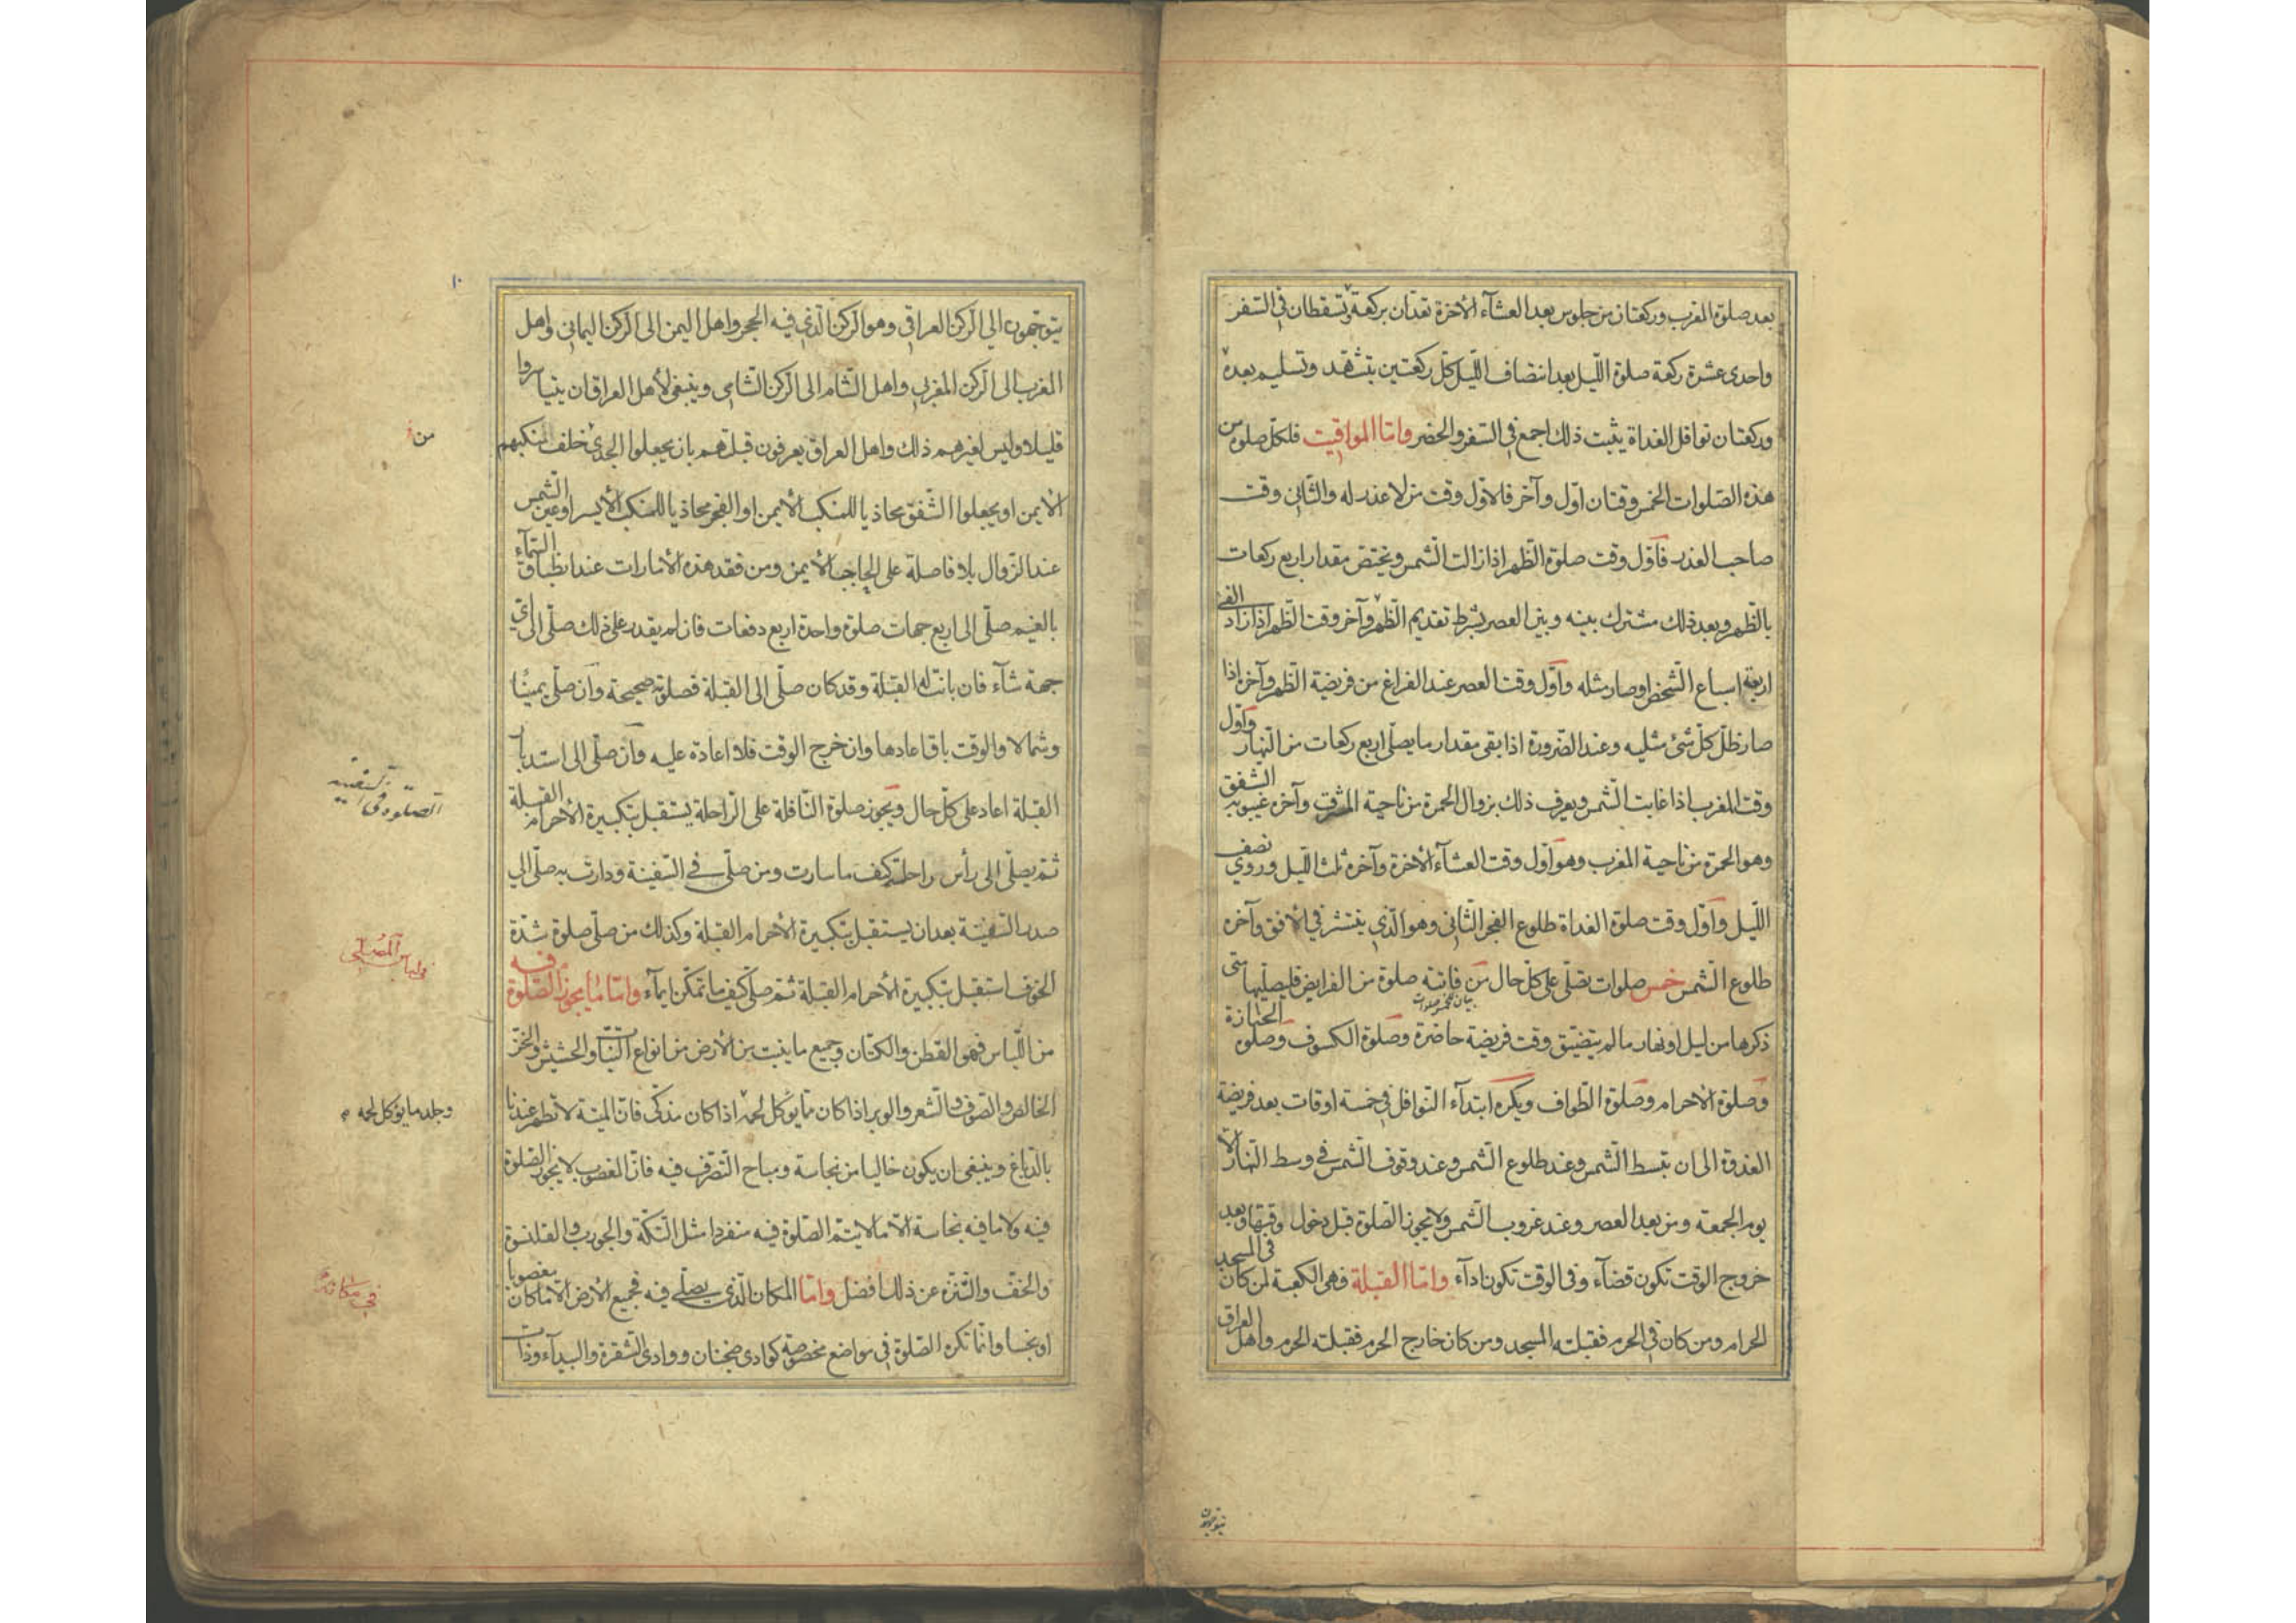 بعد صلوة المغرب وركعتان من جلوس بعد العشآء الأخرة تعدّان بركعة وتسقطان في السّفر
واحدى عشرة ركعة صلوة اللّيل بعد انتصاف اللّيل كلّ ركعتين بتشهّد وتسليم بعده
وركعتان نوافل الغداة يثبت ذلك اجمع في السّفر والحضر وامّا المواقيت فلكلّ صلوة من
هذه الصّلوات الخمس وقتان اوّل وآخر فالاوّل وقت من لا عذر له والثّاني وقت
صاحب العذر فاوّل وقت صلوة الظّهر اذا زالت الشّمس ويختصّ مقدار اربع ركعات
بالظّهر وبعد ذلك مشترك بينه وبين العصر بشرط تقديم الظّهر وآخر وقت الظّهر اذا زاد الفئ
اربعة اسباع الشّخص او صار مثله واوّل وقت العصر عند الفراغ من فريضة الظّهر وآخره اذا
صار ظلّ كلّ شئ مثليه وعند الضّرورة اذا بقى مقدار ما يصلّى اربع ركعات من النّهار واوّل
وقت المغرب اذا غابت الشّمس ويعرف ذلك بزوال الحمرة من ناحية المشرق وآخره غيبوبة الشّفق
وهو الحمرة من ناحية المغرب وهو اوّل وقت العشآء الأخرة وآخره ثلث اللّيل وروي نصف
اللّيل واوّل وقت صلوة الغداة طلوع الفجر الثّاني وهو الّذي ينتشر في الأفق وآخره
طلوع الشّمس خمس صلوات تصلّى على كلّ حال من فاتته صلوة من الفرايض فليصلّيها متى
بيان خمس صلوات
ذكرها من ليل او نهار ما لم يتضيّق وقت فريضة حاضرة وصلوة الكسوف وصلوة الجنازة
وصلوة الأحرام وصلوة الطّواف ويكره ابتدآء النّوافل في خمسة اوقات بعد فريضة
الغدوة الى ان تبسط الشّمس وعند طلوع الشّمس وعند وقوف الشّمس في وسط النّهار الّا
يوم الجمعة ومن بعد العصر وعند غروب الشّمس ولا يجوز الصّلوة قبل دخول وقتها وبعد
خروج الوقت تكون قضآء وفي الوقت تكون ادآء وامّا القبلة فهى الكعبة لمن كان في المسجد
الحرام ومن كان في الحرم فقبلته المسجد ومن كان خارج الحرم فقبلته الحرم واهل العراق
يتوجهون
١٠
يتوجّهون الى الرّكن العراقي وهو الرّكن الّذي فيه الحجر واهل اليمن الى الرّكن اليماني واهل
المغرب الى الرّكن المغربي واهل الشّام الى الرّكن الشّامي وينبغي لأهل العراق ان يتياسروا
قليلا وليس لغيرهم ذلك واهل العراق يعرفون قبلتهم بان يجعلوا الجدي خلف منكبهم
من
الأيمن او يجعلوا الشّفق محاذيا للمنكب الأيمن او الفجر محاذيا للمنكب الأيسر او عين الشّمس
عند الزّوال بلا فاصلة على الحاجب الأيمن ومن فقد هذه الأمارات عند انطباق السّمآء
بالغيم صلّى الى اربع جهات صلوة واحدة اربع دفعات فان لم يقدر على ذلك صلّى الى اي
جهة شآء فان بانت له القبلة وقد كان صلّى الى القبلة فصلوته صحيحة وان صلّى يمينًا
وشمالا والوقت باق اعادها وان خرج الوقت فلا اعادة عليه وان صلّى الى استدبار
القبلة اعاد على كلّ حال ويجوز صلوة النّافلة على الرّاحلة يستقبل بتكبيرة الأحرام القبلة
الصّلوة في السّفينة
ثمّ يصلّى الى رأس راحلته كيف ما سارت ومن صلّى في السّفينة ودارت به صلّى الى
صدر السّفينة بعد ان يستقبل بتكبيرة الأحرام القبلة وكذلك من صلّى صلوة شدّة
في لباس المُصلّي
الخوف استقبل بتكبيرة الأحرام القبلة ثمّ صلّى كيف ما تمكّن ايمآء وامّا ما يجوز الصّلوة فيه
من اللّباس فهو القطن والكتان وجميع ما ينبت من الأرض من انواع النّبات والحشيش والخزّ
الخالص والصّوف والشّعر والوبر اذا كان ممّا يؤكل لحمه اذا كان مذكّى فانّ الميتة لا تطهر عندنا
وجلد ما يؤكل لحمه
بالدّباغ وينبغي ان يكون خاليا من نجاسة ومباح التّصرّف فيه فانّ الغصوب لا يجوز الصّلوة
فيه ولا ما فيه نجاسة الّا ما لا يتمّ الصّلوة فيه منفردا مثل التّكّة والجورب والقلنسوة
والخفّ والتّنزّه عن ذلك افضل وامّا المكان الّذي يصلّى فيه فجميع الأرض الّا ما كان مغصوبا
في مكانه
او نجسا وانّما تكره الصّلوة في مواضع مخصوصة كوادى ضجنان ووادى الشّقرة والبيدآء وذات